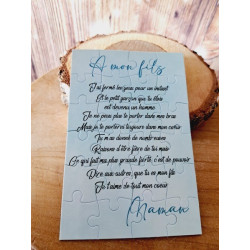 A mon fils
J'ai fermé les yeux pour un instant
Et le petit garçon que tu étais
est devenu un homme
Je ne peux plus te porter dans mes bras
Mais je te porterai toujours dans mon cœur
Tu m'as donné de nombreuses
Raisons d'être fière de toi mais
Ce qui fait ma plus grande fierté, c'est de pouvoir
Dire aux autres, que tu es mon fils
Je t'aime de tout mon coeur
Maman